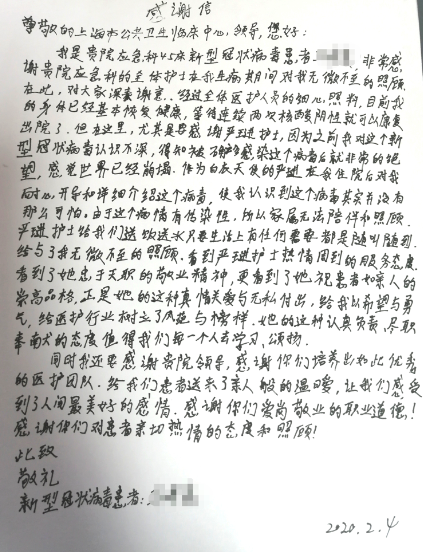 感谢信
尊敬的上海市公共卫生临床中心,领导,您好:
我是贵院应急科45床新型冠状病毒患者 非常感
谢贵院应急科的全体护士在我生病期间对我无微不至的照顾
在此,对大家深表谢意..经过全体医护人员的细心照料,目前我
的身体已经基本恢复健康,等待连续两次核酸阴性就可以康复
出院了.但在这里,尤其是要感谢严璡护士,因为之前我对这个新
型冠状病毒认识不深,得知被确诊感染这个病毒后就非常的绝
望,感觉世界已经崩塌.作为白衣天使的严璡在我住院后对我
耐心开导和详细介绍这个病毒,使我认识到这个病其实并没有
那么可怕.由于这个病情有传染性,所以家属无法陪伴和照顾.
严璡护士给我们送饭送水只要生活上有任何需要都是随叫随到.
给与了我无微不至的照顾.看到严璡护士热情周到的服务态度
看到了她忠于天职的敬业精神,更看到了她视患者如亲人的
崇高品格,正是她的这种真情关爱与无私付出,给我以希望与勇
气,给医护行业树立了风范与榜样.她的这种认真负责,尽职
奉献的态度值得我们每一个人去学习、颂扬.
同时我还要感谢贵院领导,感谢你们培养出如此优秀
的医护团队.给我们患者送来了亲人般的温暖,让我们感受
到了人间最美好的感情.感谢你们爱岗敬业的职业道德!
感谢你们对患者亲切热情的态度和照顾!
此致
敬礼
新型冠状病毒患者:
2020.2.4